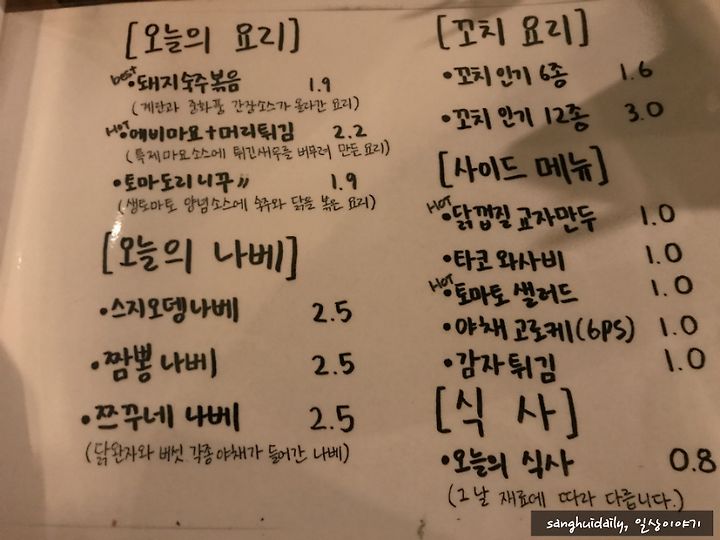 [오늘의 요리]
best •돼지숙주볶음 1.9
(계란과 춘화풍 간장소스가 올라간 요리)
HOT •에비마요+머리튀김 2.2
(특제마요소스에 튀긴새우를 버무려 만든요리)
•토마도리니꾸〃 1.9
(생토마토 양념소스에 숙주와 닭을 볶은 요리)
[오늘의 나베]
•스지오뎅나베 2.5
•짬뽕나베 2.5
•쯔꾸네 나베 2.5
(닭완자와 버섯 각종야채가 들어간 나베)
[꼬치 요리]
•꼬치 인기 6종 1.6
•꼬치 인기 12종 3.0
[사이드 메뉴]
HOT •닭껍질 교자만두 1.0
•타코 와사비 1.0
HOT •토마토 샐러드 1.0
•야채 고로케(6ps) 1.0
•감자튀김 1.0
[식 사]
•오늘의 식사 0.8
(그날 재료에 따라 다릅니다.)
sanghuidaily, 일상이야기